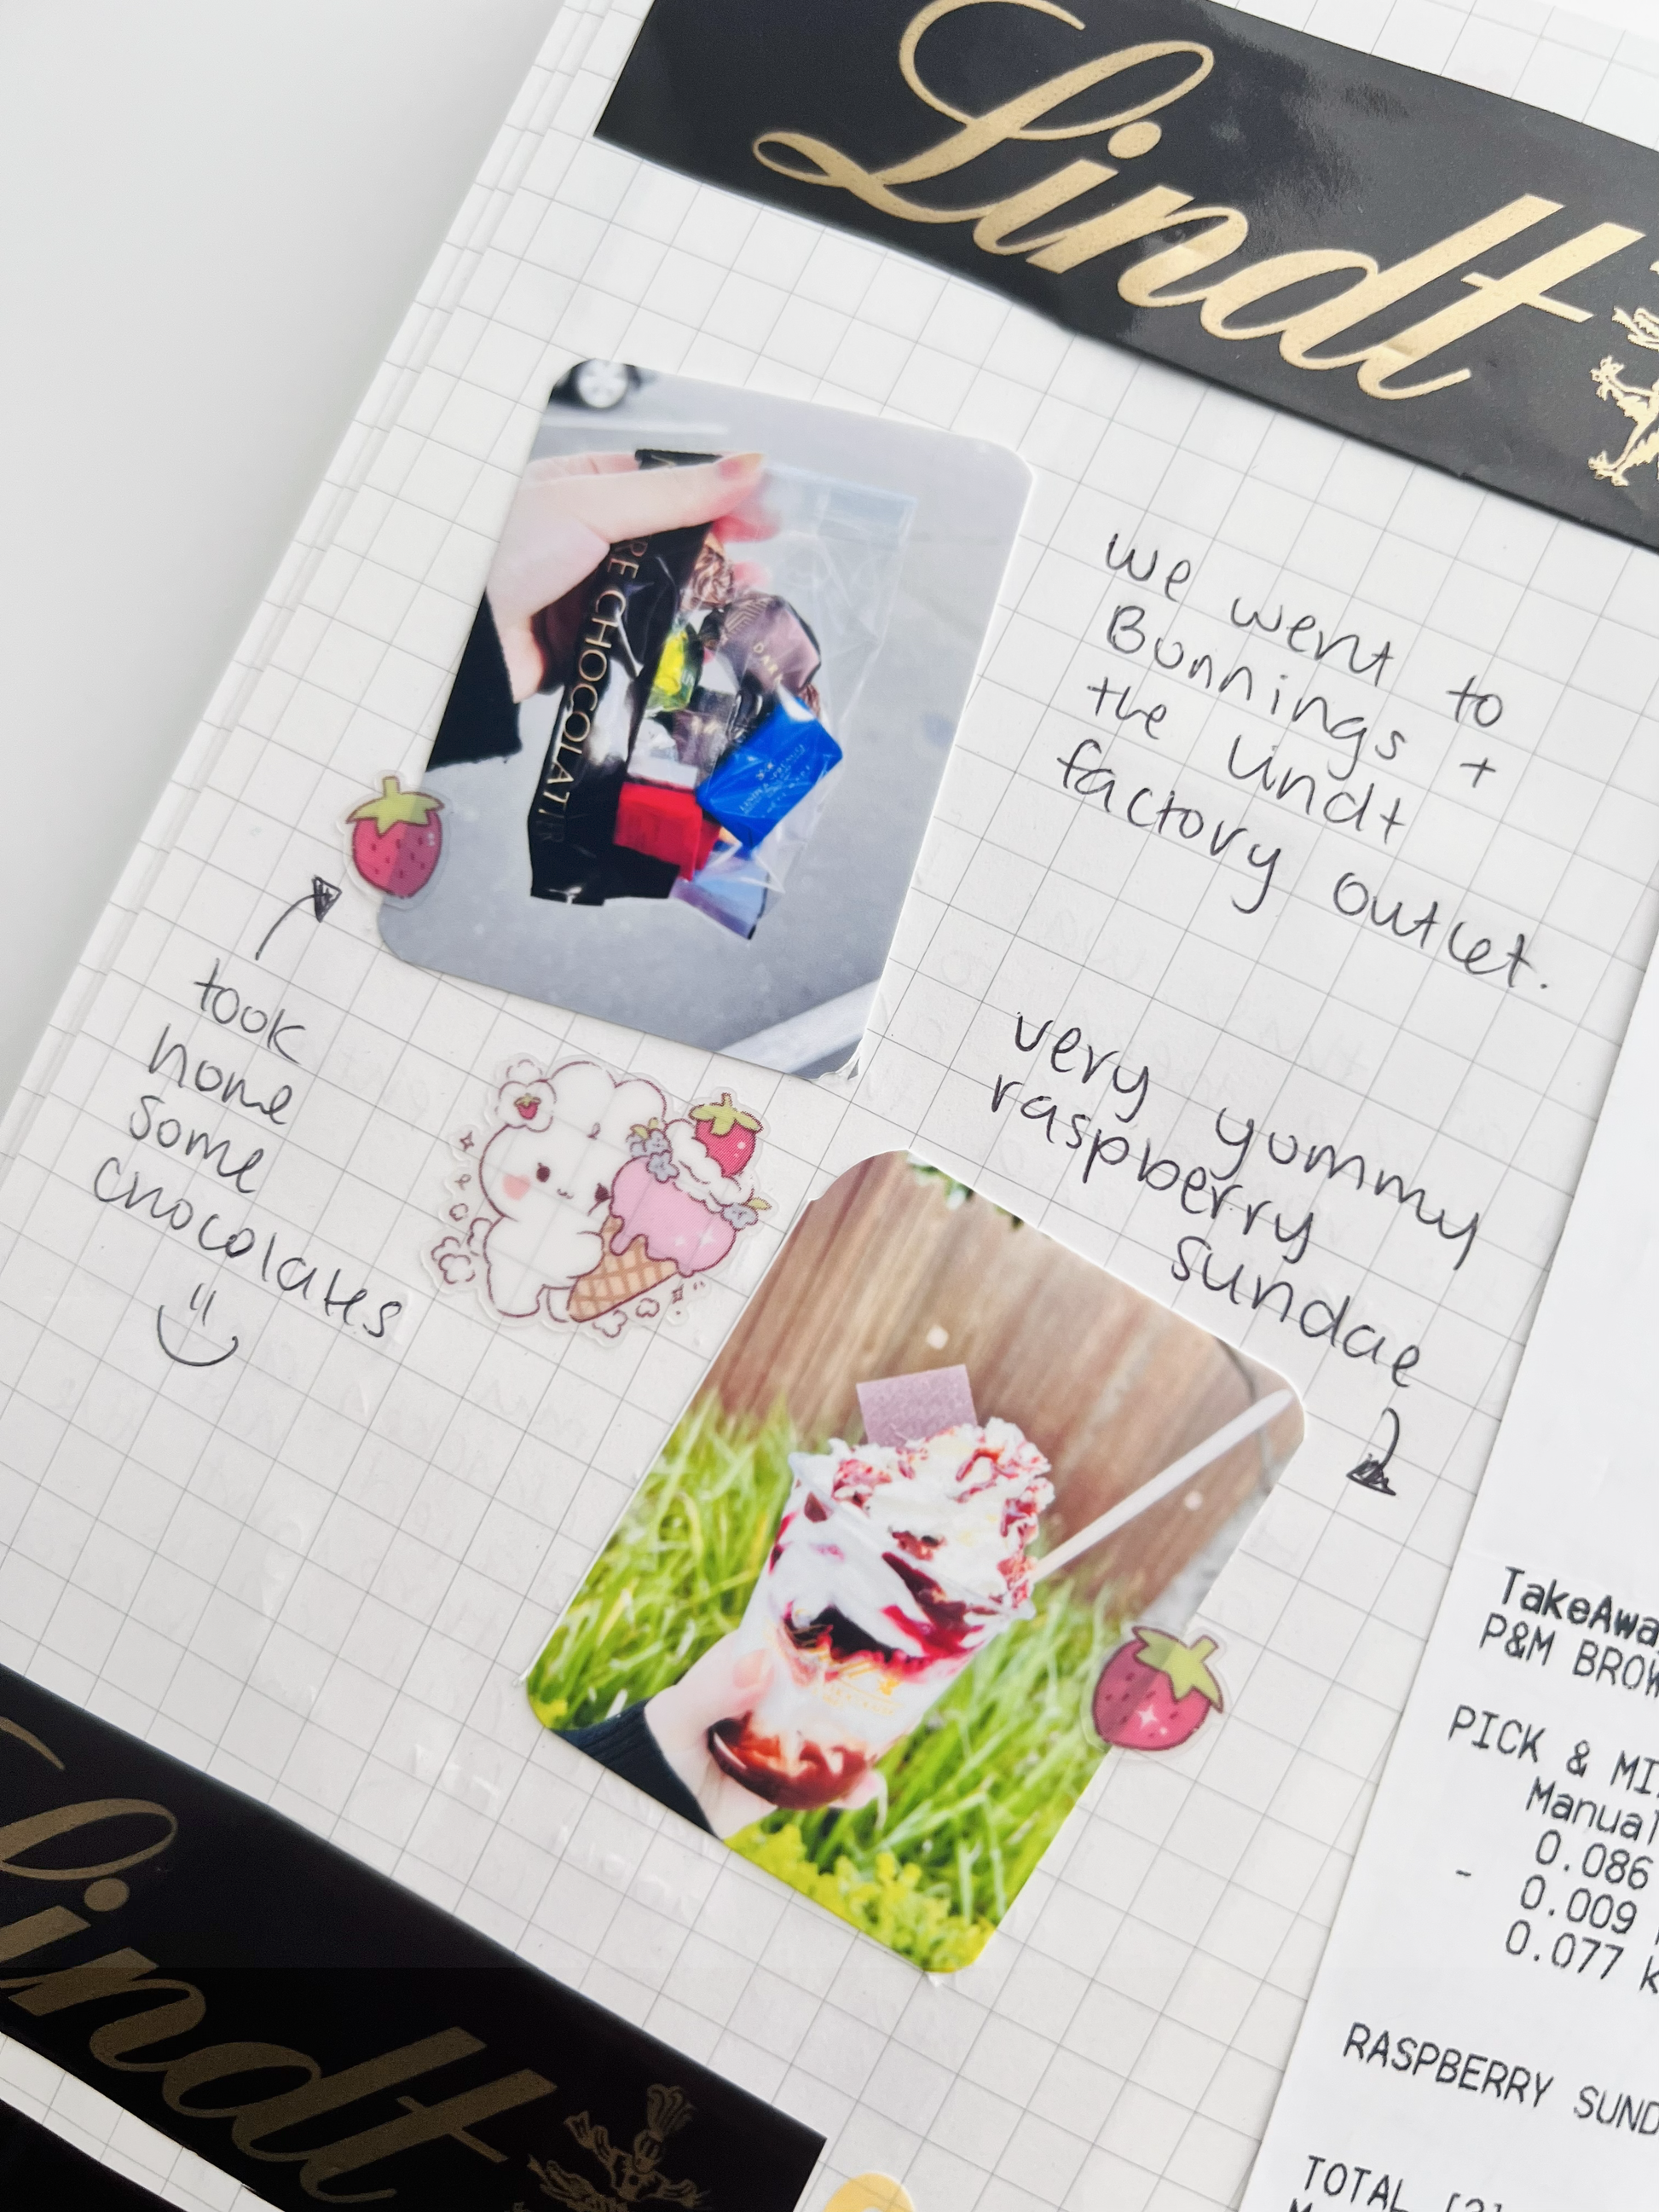 Lindt
we went to
Bunnings +
the lindt
factory outlet.
CHOCOLATIER
DARK
took
home
some
chocolates
very yummy
raspberry
sundae
TakeAwa
P&M BROW
PICK & MI
Manual
0.086
- 0.009
0.077 k
RASPBERRY SUND
TOTAL [2]
Lindt